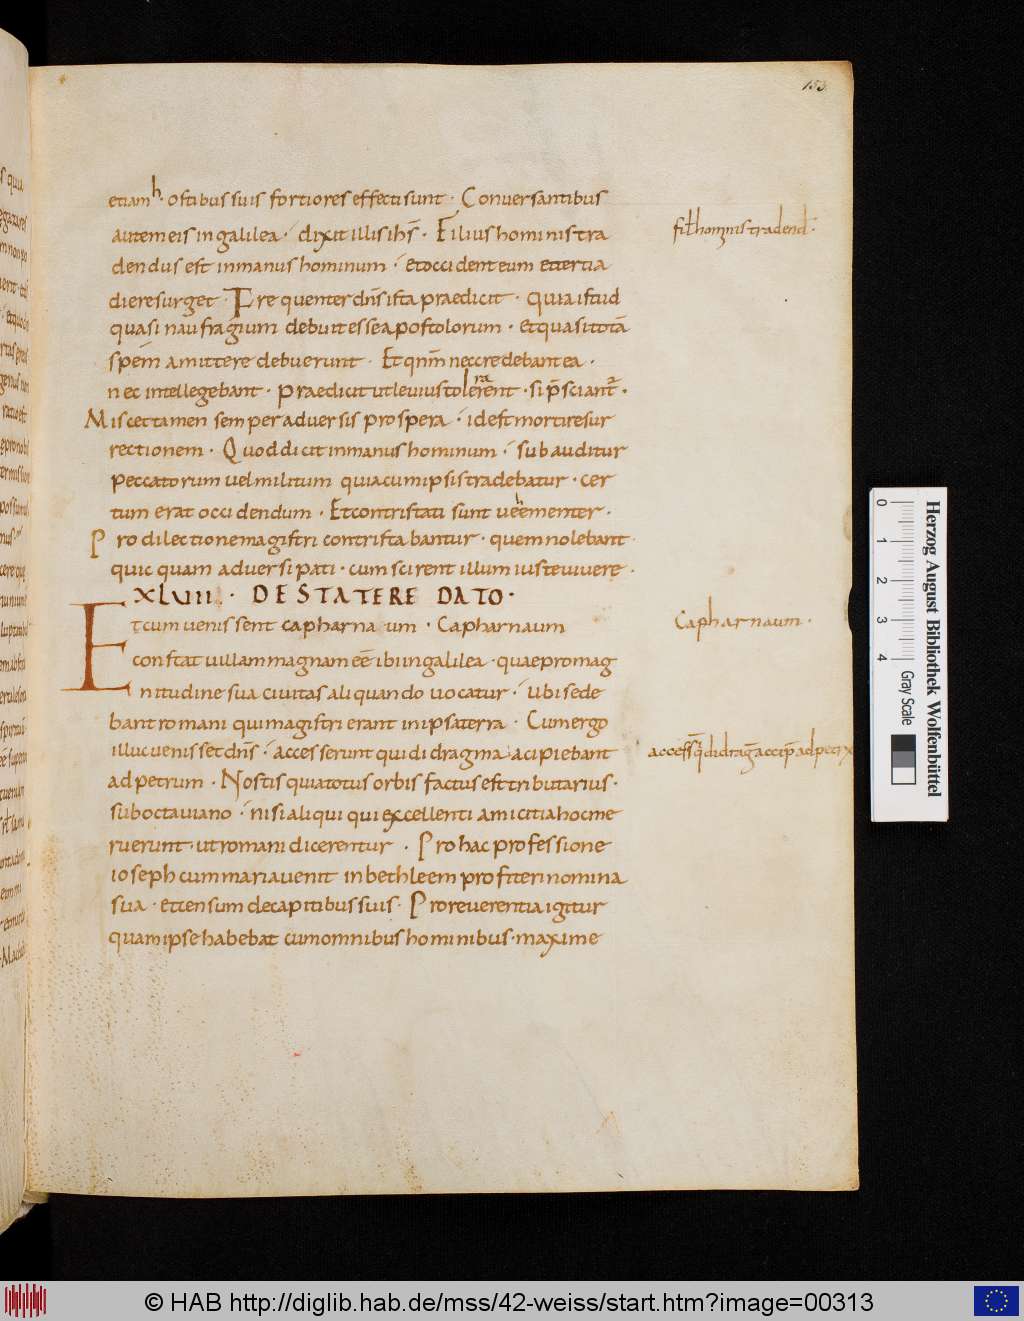 153
etiam hostibus suis fortiores effecti sunt · Conversantibus
autem eis in galilea · dixit illis ihs̄ · Filius hominis tra
dendus est in manus hominum · et occident eum et tertia
die resurget · Frequenter dn̄s ista praedicit · quia istud
quasi naufragium debuit esse apostolorum · et quasi totā
spem amittere debuerunt · Et qnm̄ nec credebant ea ·
nec intellegebant · praedicit ut levius tolerarent · si p̄sciant᷑ ·
Miscet tamen semper adversis prospera · id est morti resur
rectionem · Quod dicit in manus hominum · subauditur
peccatorum vel militum quia cum ipsis tradebatur · cer
tum erat occidendum · Et contristati sunt vehementer ·
Pro dilectione magistri contristabantur · quem nolebant
quicquam adversi pati · cum scirent illum iuste vivere ·
XLVIII · DE STATERE DATO ·
Et cum venissent capharnaum · Capharnaum
constat villam magnam eē ibi in galilea · quae pro mag
nitudine sua civitas aliquando vocatur · ubi sede
bant romani qui magistri erant in ipsa terra · Cum ergo
illuc venisset dn̄s · accesserunt qui didragma acipiebant
ad petrum · Nostis quia totus orbis factus est tributarius ·
sub octaviano · nisi aliqui qui excellenti amicitia hoc me
ruerunt · ut romani dicerentur · Pro hac professione
ioseph cum maria venit in bethleem profiteri nomina
sua · et censum de capitibus suis · Pro reverentia igitur
quam ipse habebat cum omnibus hominibus · maxime
fil hominis tradend ·
Capharnaum ·
access q̄ didrag accip̄ ad petrū
Herzog August Bibliothek Wolfenbüttel
Gray Scale
0 1 2 3 4
© HAB http://diglib.hab.de/mss/42-weiss/start.htm?image=00313